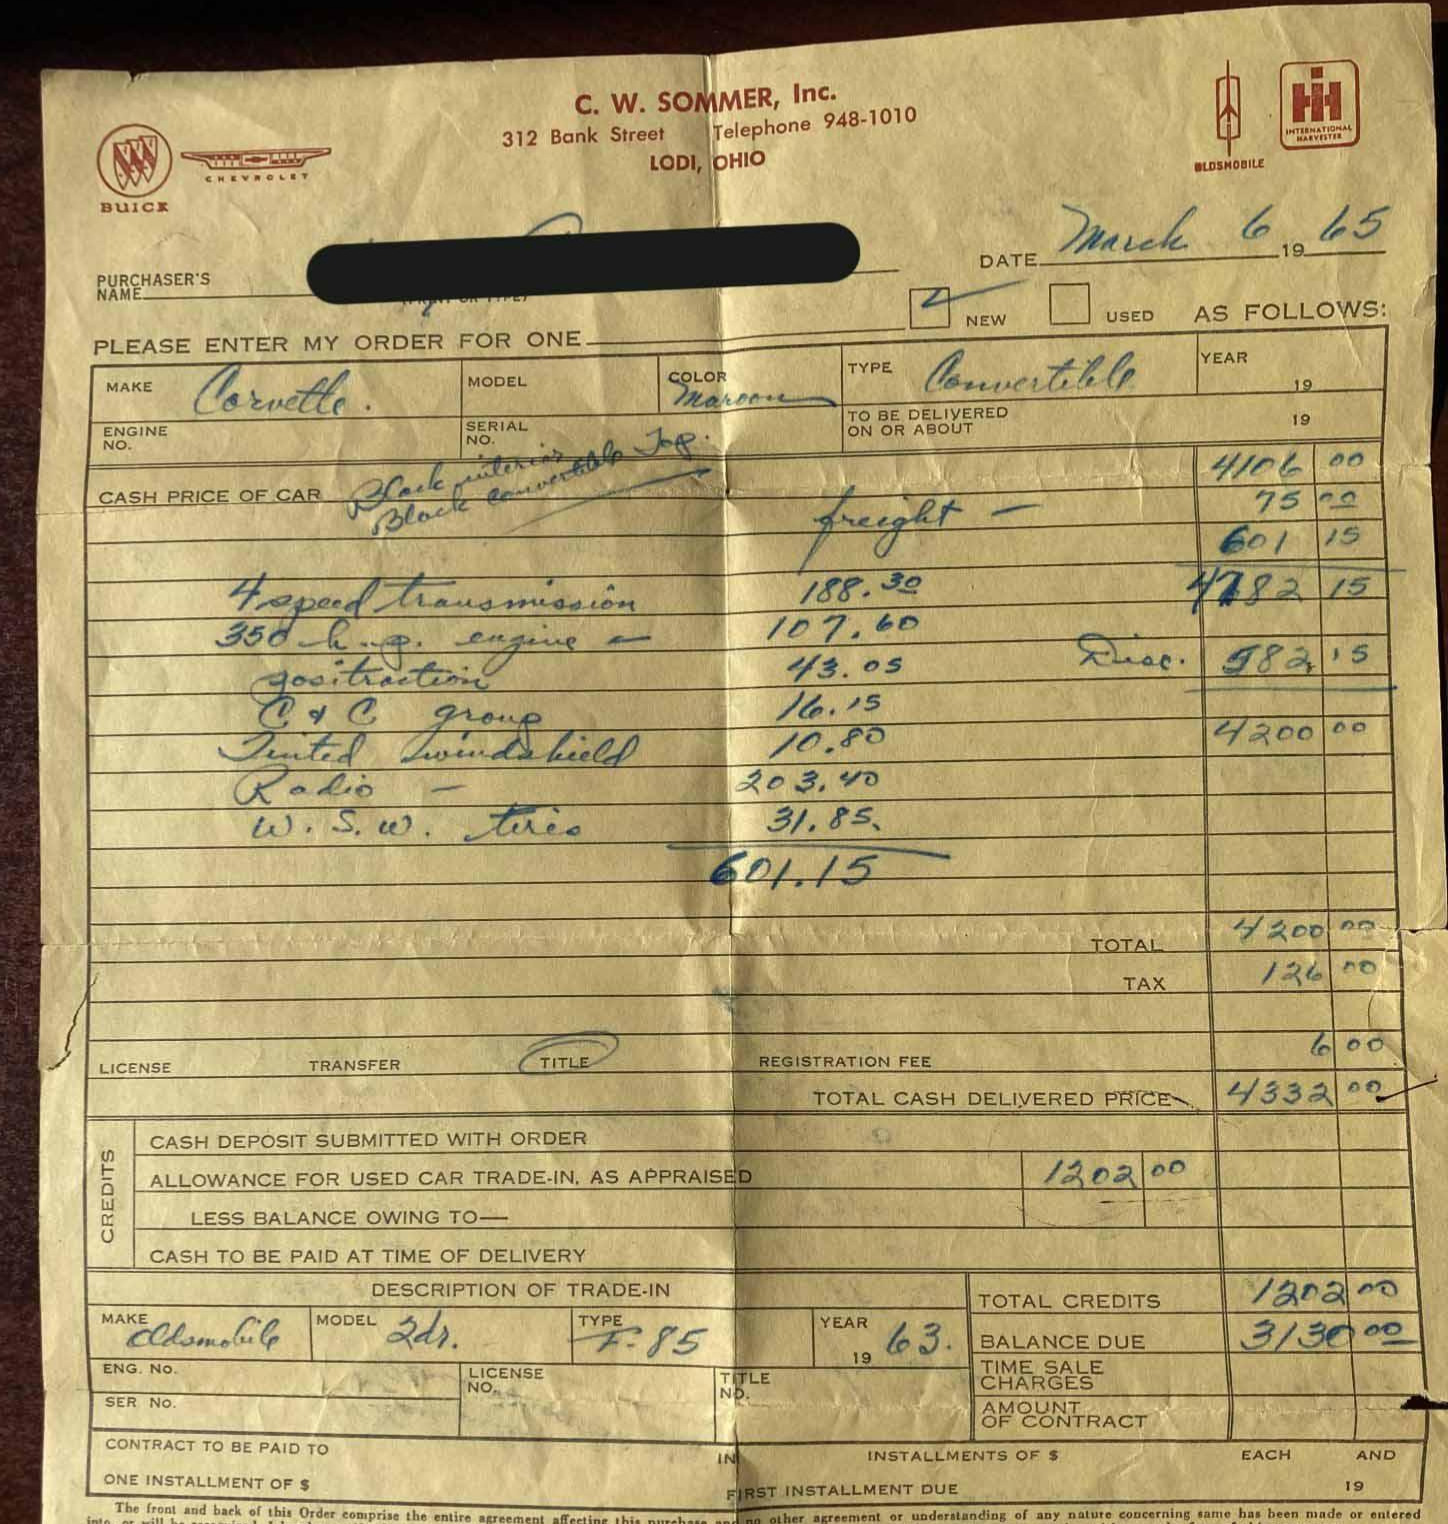 C. W. SOMMER, Inc.
312 Bank Street Telephone 948-1010
LODI, OHIO
BUICK
CHEVROLET
OLDSMOBILE
INTERNATIONAL HARVESTER
DATE March 6 19 65
PURCHASER'S NAME
(PRINT OR TYPE)
NEW USED AS FOLLOWS:
PLEASE ENTER MY ORDER FOR ONE
MAKE Corvette. MODEL COLOR Maroon TYPE Convertible YEAR 19
ENGINE NO. SERIAL NO. TO BE DELIVERED ON OR ABOUT 19
CASH PRICE OF CAR Black interior 4106 00
Black convertible Top.
freight — 75 00
601 15
4 speed transmission 188.30 4782 15
350 h.p. engine — 107.60
positraction 43.05 Disc. 582.15
C & C group 16.15
Tinted windshield 10.80 4200 00
Radio — 203.40
W. S. W. tires 31.85
601.15
TOTAL 4200 00
TAX 126 00
LICENSE TRANSFER TITLE REGISTRATION FEE 6 00
TOTAL CASH DELIVERED PRICE 4332 00
CREDITS
CASH DEPOSIT SUBMITTED WITH ORDER
ALLOWANCE FOR USED CAR TRADE-IN, AS APPRAISED 1202 00
LESS BALANCE OWING TO—
CASH TO BE PAID AT TIME OF DELIVERY
DESCRIPTION OF TRADE-IN TOTAL CREDITS 1202 00
MAKE Oldsmobile MODEL 2dr. TYPE F-85 YEAR 19 63. BALANCE DUE 3130 00
ENG. No. LICENSE NO. TITLE NO. TIME SALE CHARGES
SER No. AMOUNT OF CONTRACT
CONTRACT TO BE PAID TO IN INSTALLMENTS OF $ EACH AND
ONE INSTALLMENT OF $ FIRST INSTALLMENT DUE 19
The front and back of this Order comprise the entire agreement affecting this purchase and no other agreement or understanding of any nature concerning same has been made or entered